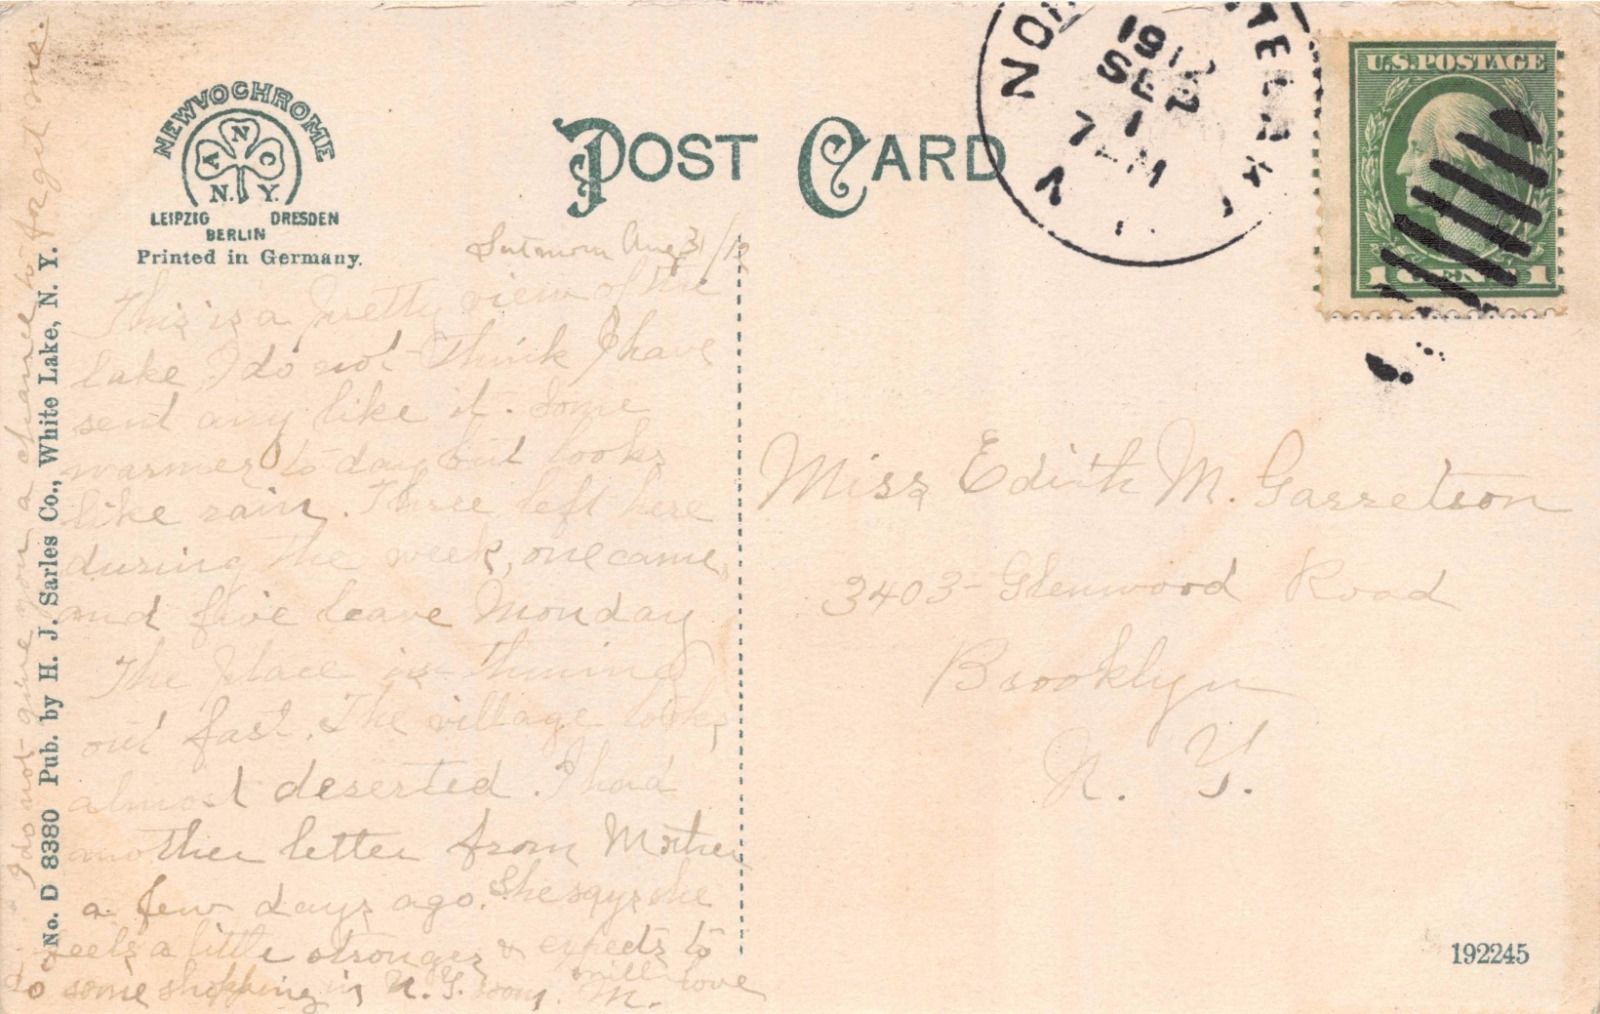 NEWVOCHROME
A N C
N. Y.
LEIPZIG DRESDEN
BERLIN
Printed in Germany.
POST CARD
1912
SEP
1
7 AM
N. Y.
U.S. POSTAGE
1 CENT 1
Sat morn Aug 31/12
This is a pretty view of the
lake, I do not think I have
sent any like it. Some
warmer to day but looks
like rain. Three left here
during the week, one came
and five leave Monday
The place is thinning
out fast. The village looks
almost deserted. I had
another letter from Mother
a few days ago. She says she
feels a little stronger & expects to
do some shopping in N.Y. soon. with love
M.
I do not give you a chance to forget me.
No. D 8380 Pub. by H. J. Sarles Co., White Lake, N. Y.
Miss Edith M. Garretson
3403 - Glenwood Road
Brooklyn
N. Y.
192245